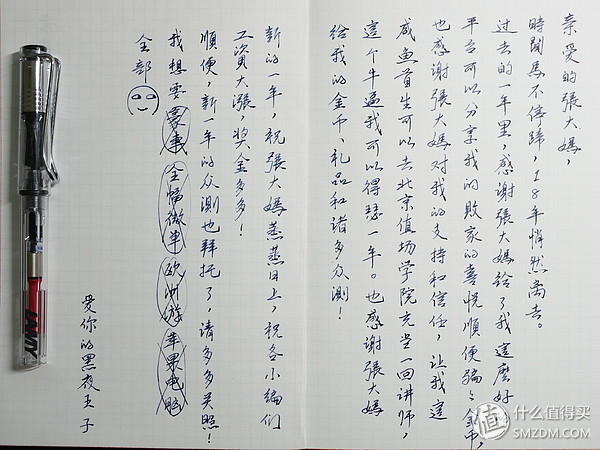 亲爱的張大媽,
時間馬不停蹄,18年悄然离去。
过去的一年里,感谢張大媽给了我這麼好
平台可以分享我的敗家的喜悦顺便骗骗金币,
也感谢張大媽对我的支持和信任,让我這
咸鱼首生可以去北京值场学院充当一回讲师,
這个牛逼我可以得瑟一年。也感谢張大媽
给我的金币、礼品和诸多众测!
新的一年,祝張大媽蒸蒸日上,祝各小编们
工資大漲,奖金多多!
顺便,新一年的众测也拜托了,请多多关照!
我想要豪車 全幅微单 欧洲游 苹果电脑
全部
爱你的黑夜王子
LAMY
值 什么值得买
SMZDM.COM